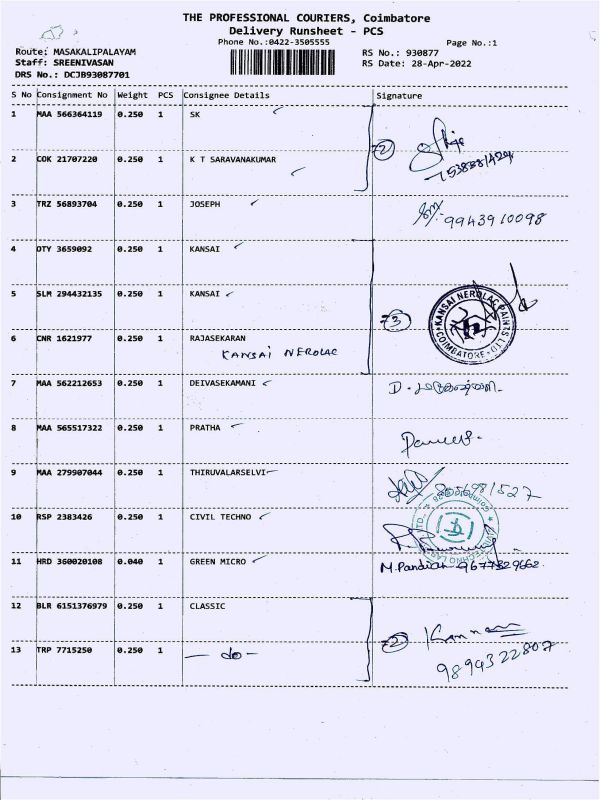 THE PROFESSIONAL COURIERS, Coimbatore
Delivery Runsheet - PCS
Phone No.:0422-3505555
Page No.:1
Route: MASAKALIPALAYAM
RS No.: 930877
Staff: SREENIVASAN
RS Date: 28-Apr-2022
DRS No.: DCJB93087701
S No Consignment No Weight PCS Consignee Details Signature
1 MAA 566364119 0.250 1 SK
2 COK 21707220 0.250 1 K T SARAVANAKUMAR
2
3 TRZ 56893704 0.250 1 JOSEPH 9943910098
4 OTY 3659092 0.250 1 KANSAI
5 SLM 294432135 0.250 1 KANSAI
3
KANSAI NEROLAC PAINTS LTD
COIMBATORE
6 CNR 1621977 0.250 1 RAJASEKARAN
KANSAI NEROLAC
7 MAA 562212653 0.250 1 DEIVASEKAMANI
8 MAA 565517322 0.250 1 PRATHA
9 MAA 279907044 0.250 1 THIRUVALARSELVI
10 RSP 2383426 0.250 1 CIVIL TECHNO
11 HRD 360020108 0.040 1 GREEN MICRO M.Pandian 9677329662
12 BLR 6151376979 0.250 1 CLASSIC Kannan
2
13 TRP 7715250 0.250 1 — do — 9894322807